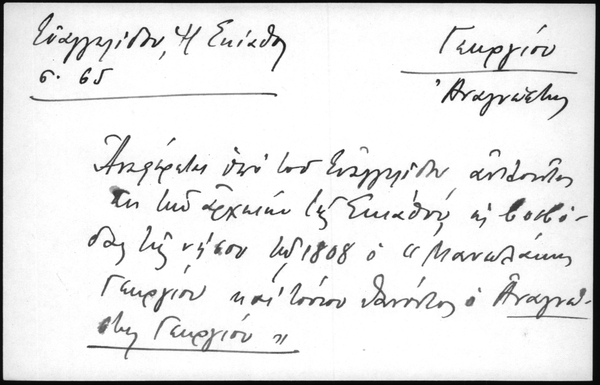 Εὐαγγελίδου, Ἡ Σκίαθος
σ. 65
Γεωργίου
Ἀναγνώστης
Ἀναφέρεται ὑπὸ τοῦ Εὐαγγελίδου,
ἐκ τῶν ἀρχείων τῆς Σκιάθου, ὡς βοεβό-
δας τῆς νήσου τῷ 1808 ὁ "Μανωλάκης
Γεωργίου καὶ τούτου θανόντος ὁ Ἀναγνώ-
στης Γεωργίου"